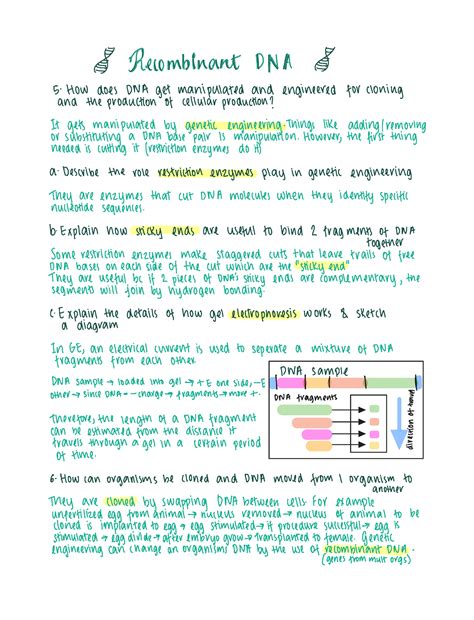 Recombinant DNA
5. How does DNA get manipulated and engineered for cloning
and the production of cellular production?
It gets manipulated by genetic engineering. Things like adding/removing
or substituting a DNA base pair is manipulation. However, the first thing
needed is cutting it (restriction enzymes do it)
a. Describe the role restriction enzymes play in genetic engineering
They are enzymes that cut DNA molecules when they identify specific
nucleotide sequences.
b. Explain how sticky ends are useful to bind 2 fragments of DNA
together
Some restriction enzymes make staggered cuts that leave trails of free
DNA bases on each side of the cut which are the "sticky end"
They are useful bc if 2 pieces of DNA's sticky ends are complementary, the
segments will join by hydrogen bonding.
c. Explain the details of how gel electrophoresis works & sketch
a diagram
In GE, an electrical current is used to seperate a mixture of DNA
fragments from each other
DNA sample → loaded into gel → + E one side, -E
other → since DNA = - charge → fragments → move +.
Therefore, the length of a DNA fragment
can be estimated from the distance it
travels through a gel in a certain period
of time.
DNA sample
DNA fragments
direction of
6. How can organisms be cloned and DNA moved from 1 organism to
another
They are cloned by swapping DNA between cells. For example
unfertilized egg from animal → nucleus removed → nucleus of animal to be
cloned is implanted to egg → egg stimulated → if procedure successful → egg is
stimulated → egg divide → after embryo grow → transplanted to female. Genetic
engineering can change an organisms DNA by the use of recombinant DNA.
(genes from mult orgs)